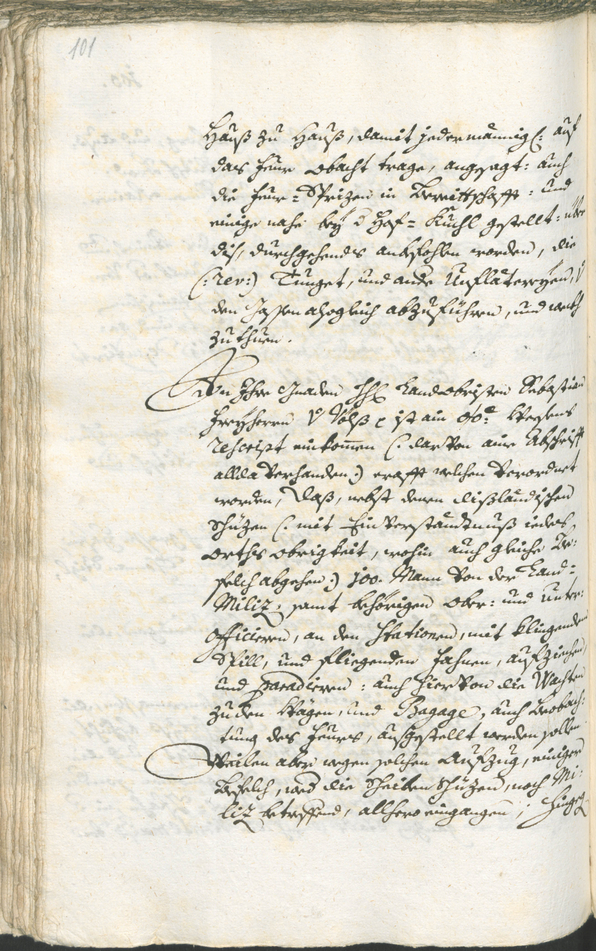 101
Hauß zu Hauß, damit jedermännig(: auf
das Feur obacht trage, angesagt: auch
die Feur-Sprizen in Bereittschafft: und
einige nahe beÿ d Hof-Kuchl gestellt: über
diß, durchgehendts anbefohlen worden, die
(:rev:) Tunget, und ande Unflätereÿen, v
den Gassen alsogleich abzuführen, und weckh
zuthuen.
An Ihro Gnaden HH Landtobristen Sebastian
Freÿherrn v Völß ist ain Ob: Wesens
rescript einkom̅en (: darvon aine Abschrifft
allda verhanden:) crafft welchen verordnet
worden, daß, nebst denen dißländischen
Schüzen (: mit Einverständtnuß iedes
Orths Obrigkeit, wohin auch gleiche Be-
felch abgehen:) 100. Mann von der Land-
Miliz, samt behörigen Ober: und Unter:
Officieren, an den Stationen, mit klingenden
Spill, und fliegenden Fahnen, aufziehen,
und paradieren: auch hiervon die Wachten
zu den Wägen, und Bagage, auch Beobach-
tung des Feurs, aufgestellt werden sollen
Weilen aber wegen solchen Aufzug, einiger
Befelch, weder die Scheiben Schüzen, noch Mi-
liz betreffend, allhero eingangen; Hingeg